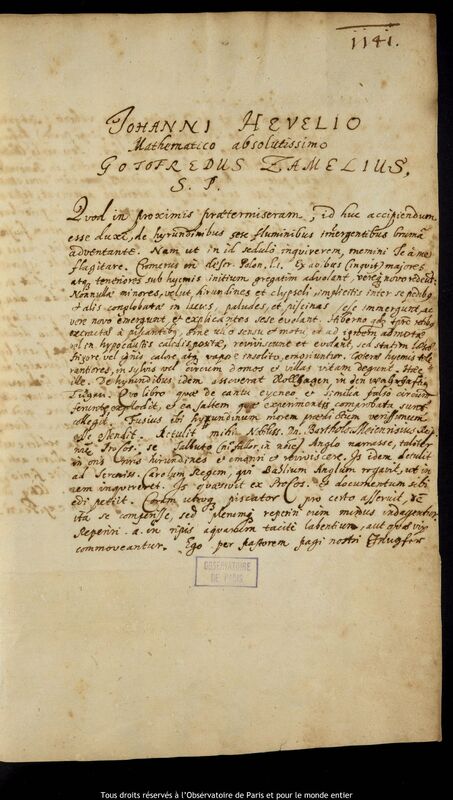 1141.
JOHANNI HEVELIO
Mathematico absolutissimo
GOTOFREDUS ZAMELIUS,
S. P.
Quod in proximis prætermiseram, id huc accipiendum
esse duxi, de hyrundinibus sese fluminibus immergentibus brumâ
adventante. Nam ut in id sedulò inquirerem, memini Te à me
flagitare. Cromerus in descr. Polon. l. 1. Ex avibus (inquit) majores
atq teneriores sub hyemis initium gregatim advolant, vereq novo redeunt.
Nonnullæ minores, velut hirundines et clypeoli, implicitis inter se pedibus
et alis conglobatæ in lacus, paludes, et piscinas sese immergunt, ac
vere novo emergunt et explicantes sese evolant. Hyberno
extractæ à piscantibus, sine ullo sensu et motu, et ad ignem admotæ
vel in hypocaustis calidis positæ, reviviscunt et evolant, sed statim
frigore vel ignis calore atq vapore insolito emoriuntur. Cæteræ hyemis tole-
rantiores, in sylvis vel circum domos et villas vitam degunt. Hæc
ille. De hyrundinibus idem asseverat Rollhagen in den warhafften
Lügen. Quo libro quæ de cantu cycneo et similia falso circum-
feruntur explodit, et ea saltem quæ experimentis comprobata sunt
collegit. Fusius ibi hyrundinum morem verissimum
esse ostendit. Retulit mihi Nobiliss. Dn. Barthol. Meiennissius
Profos. se (ni fallor, in nave) Anglo narrasse, taliter
in oris nostris hirundines et emori et reviviscere. Is idem detulit
ad Sereniss. Carolum Regem, qui Basilium Anglum rogavit, ut in
rem inquireret. Is quæsivit ex Profos. et documentum sibi
edi petiit. Coram utroq piscator pro certo asseruit, rem
ita se compertisse, sed plerumq reperiri cum minus indagentur.
Reperiri a. in ripis aquarum tacitè labentium, aut quæ vix
commoveantur. Ego per pastorem pagi nostri
OBSERVATOIRE
DE PARIS
Tous droits réservés à l'Observatoire de Paris et pour le monde entier